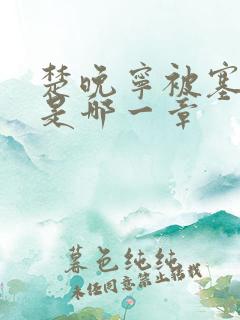 楚晚寧被塞
是哪一章
暮色纯纯
未经同意禁止转载